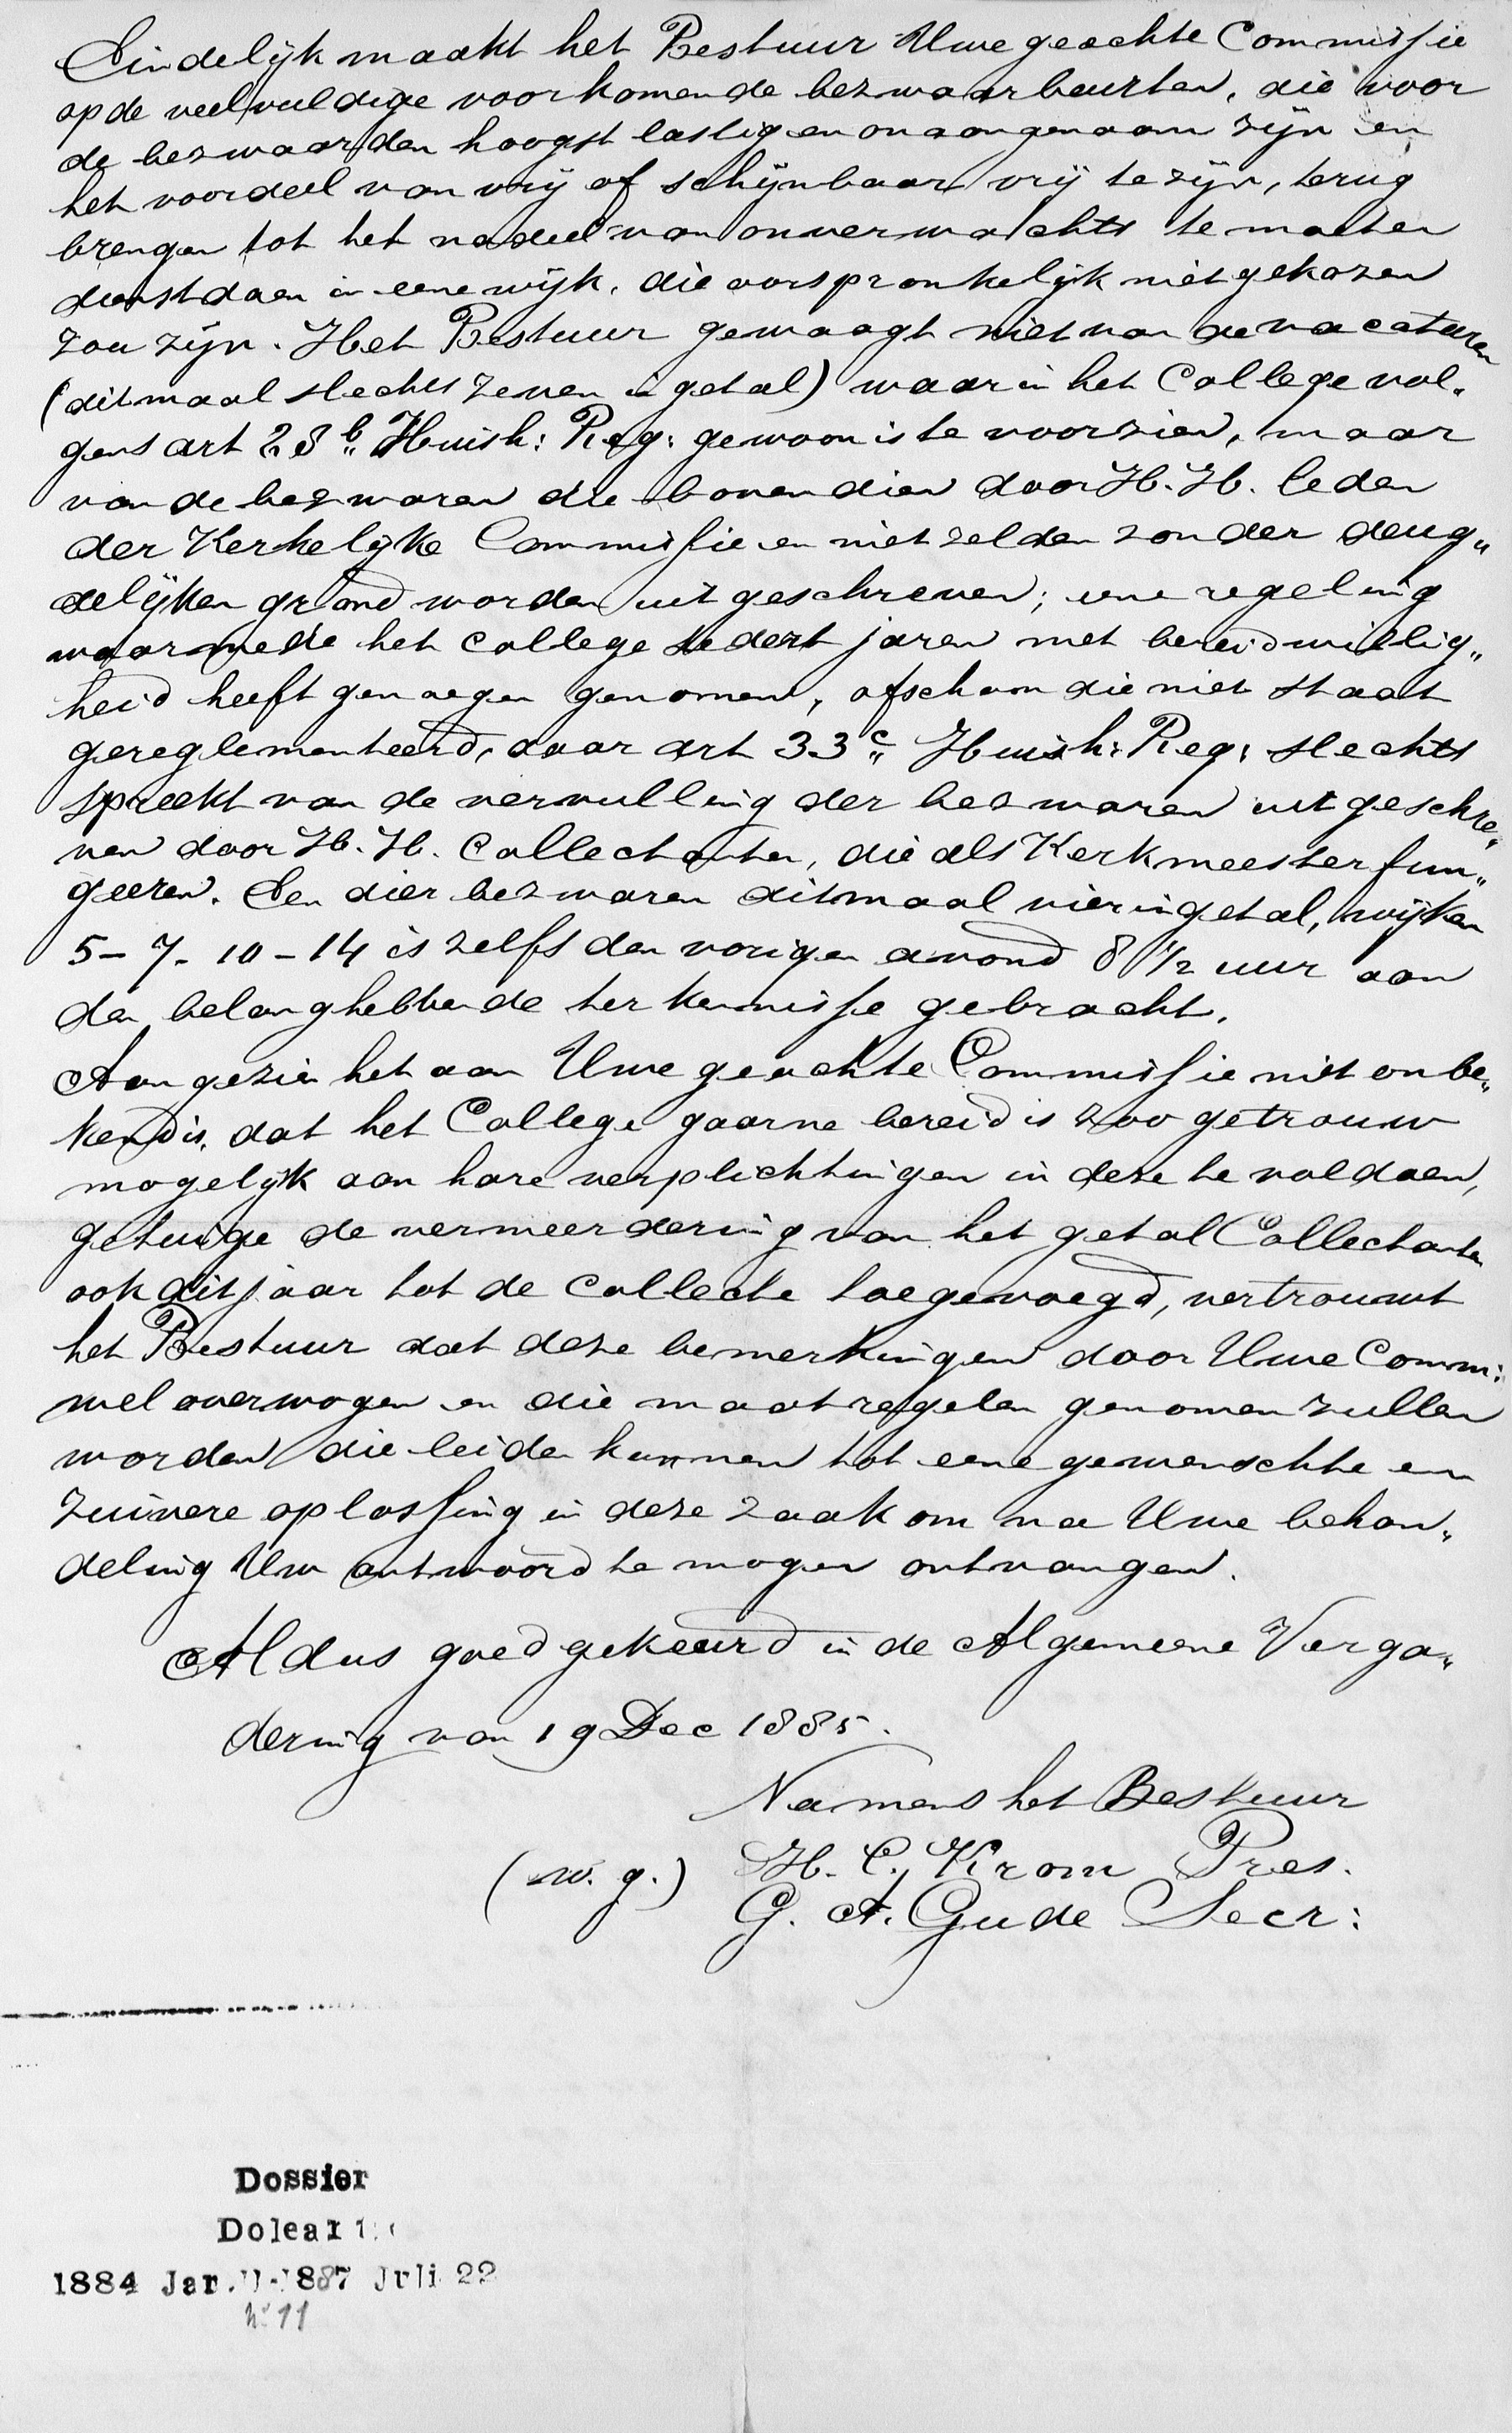 Eindelijk maakt het Bestuur Uwe geachte Commissie
op de veelvuldige voorkomende bezwaarbeurten, die voor
de bezwaarden hoogst lastig en onaangenaam zijn en
het voordeel van vrij of schijnbaar vrij te zijn, terug
brengen tot het nadeel van onverwachts te moeten
dienstdoen in eene wijk, die oorspronkelijk niet gekozen
zou zijn. Het Bestuur gewaagt niet van de vacaturen
(ditmaal slechts zeven in getal) waarin het College vol„
gens art 28 b„ Huish: Reg: gewoon is te voorzien, maar
van de bezwaren die bovendien door H. H. leden
der Kerkelijke Commissie en niet zelden zonder deug„
delijken grond worden uitgeschreven; eene regeling
waarmede het College sedert jaren met bereidwillig„
heid heeft genoegen genomen, ofschoon die niet staat
gereglementeerd, daar art 33 c„ Huish: Reg: slechts
spreekt van de vervulling der bezwaren uitgeschre„
ven door H. H. Collectanten, die als Kerkmeester fun„
geeren. Een dier bezwaren ditmaal vier in getal, wijken
5 - 7 - 10 - 14 is zelfs den vorigen avond 8 1/2 uur aan
den belanghebbende ter kennisse gebracht.
Aangezien het aan Uwe geachte Commissie niet onbe„
kend is, dat het College gaarne bereid is zoo getrouw
mogelijk aan hare verplichtingen in deze te voldoen,
getuige de vermeerdering van het getal Collectanten
ook dit jaar tot de collecte toegevoegd, vertrouwt
het Bestuur dat deze bemerkingen door Uwe Comm:
wel overwogen en die maatregelen genomen zullen
worden die leiden kunnen tot eene gewenschte en
zuivere oplossing in deze zaak om na Uwe behan„
deling Uw antwoord te mogen ontvangen.
Aldus goedgekeurd in de Algemeene Verga„
dering van 19 Dec 1885.
Namens het Bestuur
(w. g.) H. C. Krom Pres.
G. A. Gude Secr:
Dossier
1884 Jan. 1887 Juli 22
No 11